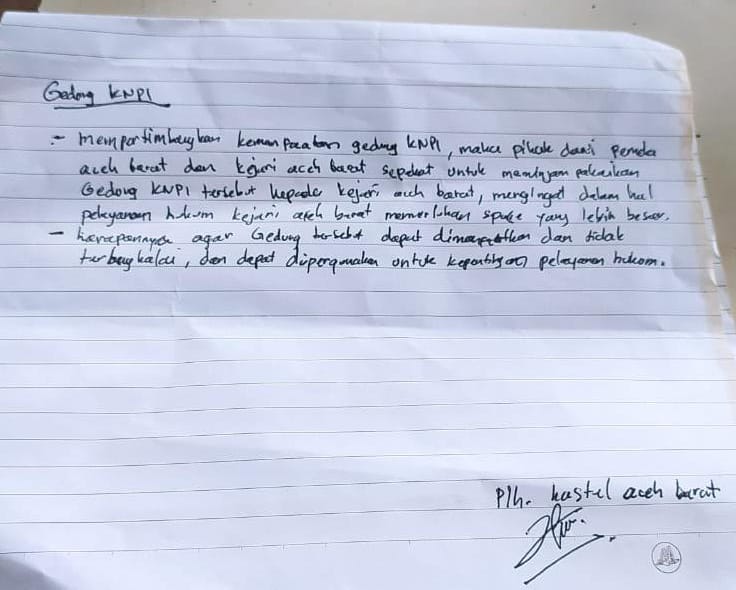 Gedong KNPI
- mempertimbangkan kemanfaatan gedung KNPI, maka pihak dari pemda
aceh barat dan kejari aceh barat sepakat untuk meminjam pakaikan
Gedong KNPI tersebut kepada kejari aceh barat, mengingat dalam hal
pelayanan hukum kejari aceh barat memerlukan space yang lebih besar.
- harapannya agar Gedung tersebut dapat dimanfaatkan dan tidak
terbengkalai, dan dapat dipergunakan untuk kepentingan pelayanan hukum.
Plh. kastel aceh barat